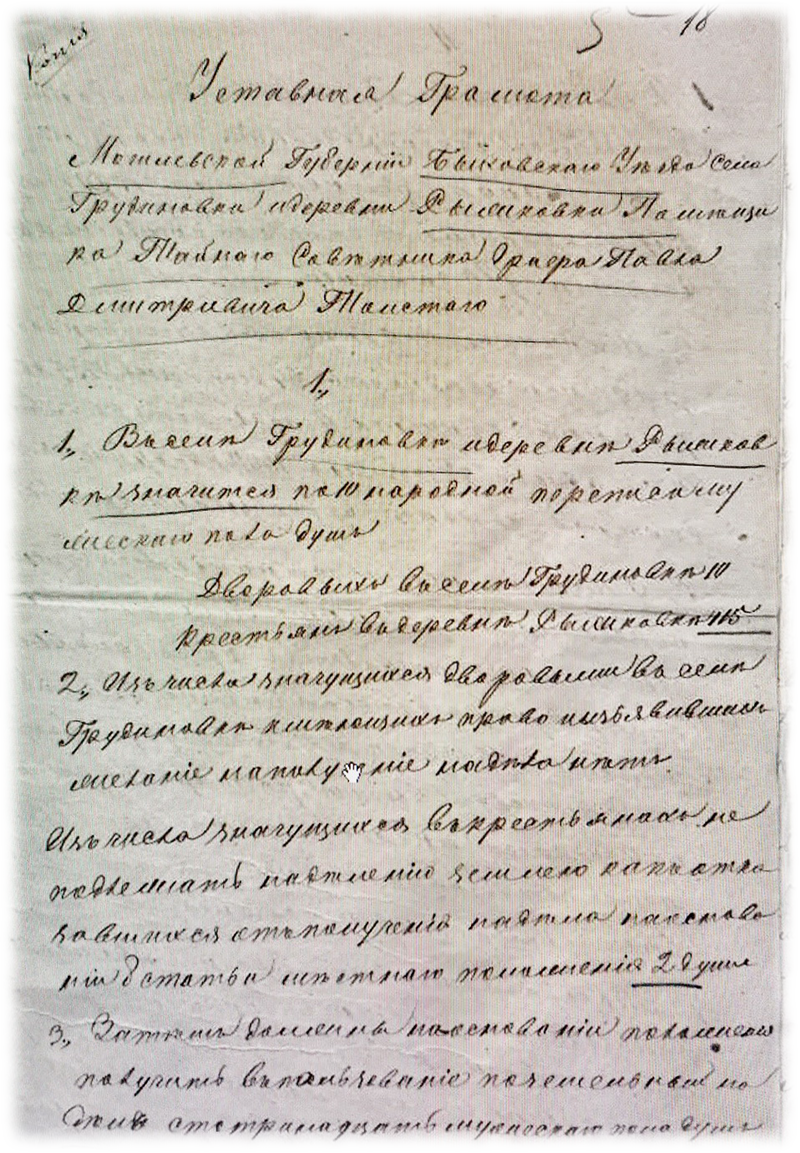 Копія
18
Уставная Грамота
Могилевской Губерніи Быховскаго Уѣзда Села
Грудиновки и деревни Рыжковки Помѣщи
ка Тайнаго Совѣтника Графа Павла
Дмитріевича Толстаго
1.,
1., Въ селѣ Грудиновкѣ и деревнѣ Рыжков
кѣ значится по 10 народной переписи му
жескаго пола душъ
Дворовыхъ въ селѣ Грудиновкѣ 10
Крестьянъ въ деревнѣ Рыжковкѣ 115
2., Изъ числа значущихся дворовыми въ селѣ
Грудиновкѣ имѣющихъ право изъявившихъ
желаніе на полученіе надѣла нѣтъ
Изъ числа значущихся въ крестьянахъ не
подлежатъ надѣленію землею какъ отка
завшихся отъ полученія надѣла на основа
ніи 8 статьи мѣстнаго положенія 2 души
3., Затѣмъ должны на основаніи положенія
получить въ пользованіе поземельный на
дѣлъ сто тринадцать мужескаго пола душъ